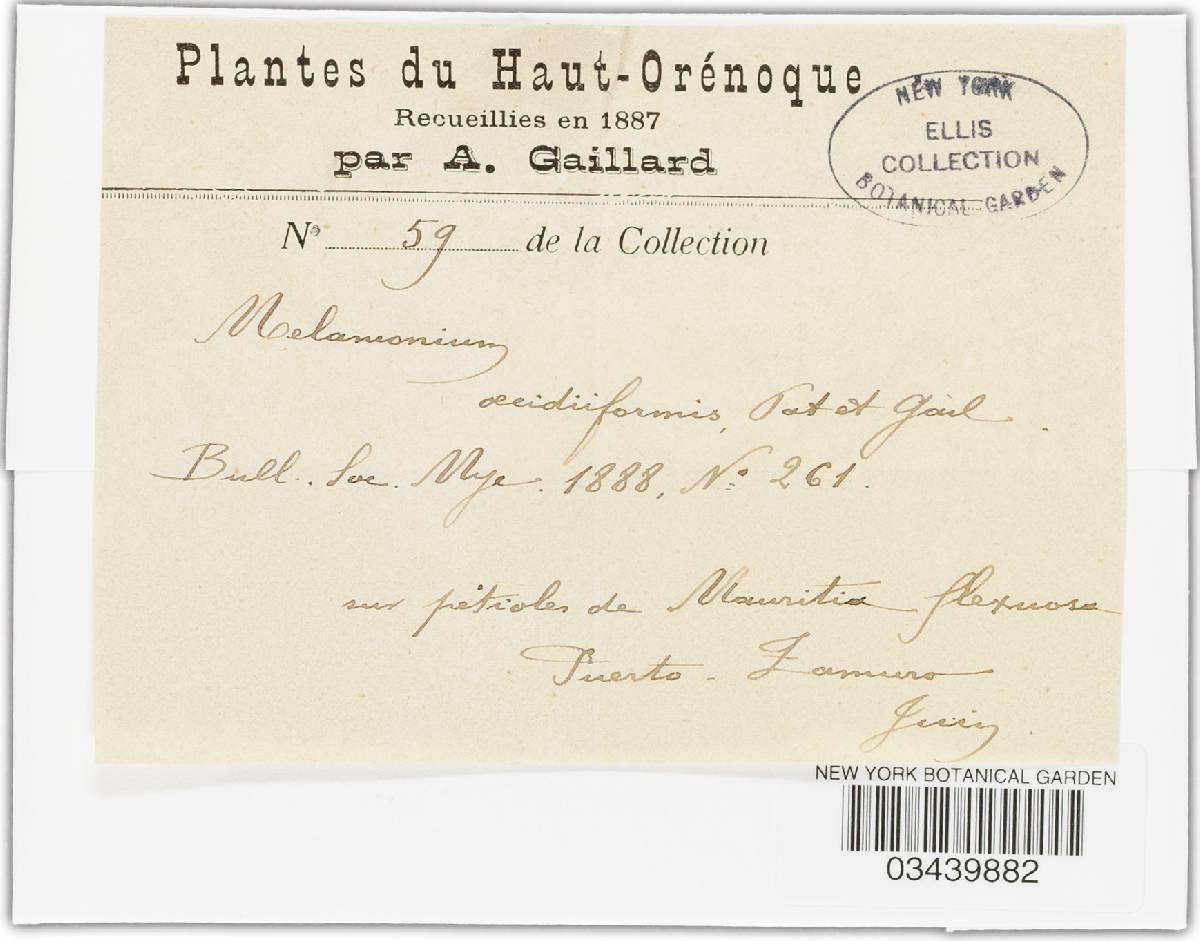 Plantes du Haut-Orénoque
Recueillies en 1887
par A. Gaillard
NEW YORK
ELLIS
COLLECTION
BOTANICAL GARDEN
No 59 de la Collection
Melanconium
œcidiiformis, Pat et Gail.
Bull. Soc. Myc. 1888, No 261.
sur pétioles de Mauritia flexuosa
Puerto-Zamuro
Juin
NEW YORK BOTANICAL GARDEN
03439882